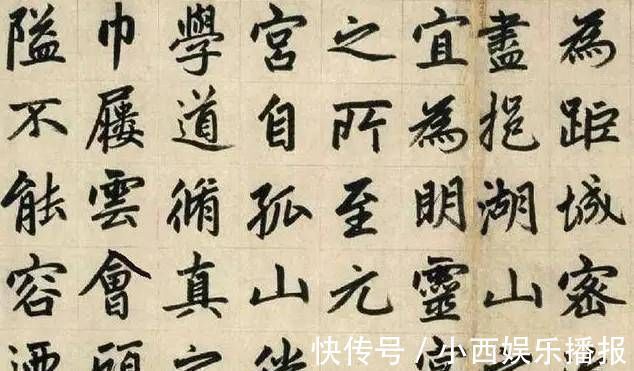 為距城密
盡挹湖山之
宜為明靈
之所至元
宮自孤山
學道脩真之
巾屨雲會
隘不能容
快传号/小西娱乐播报